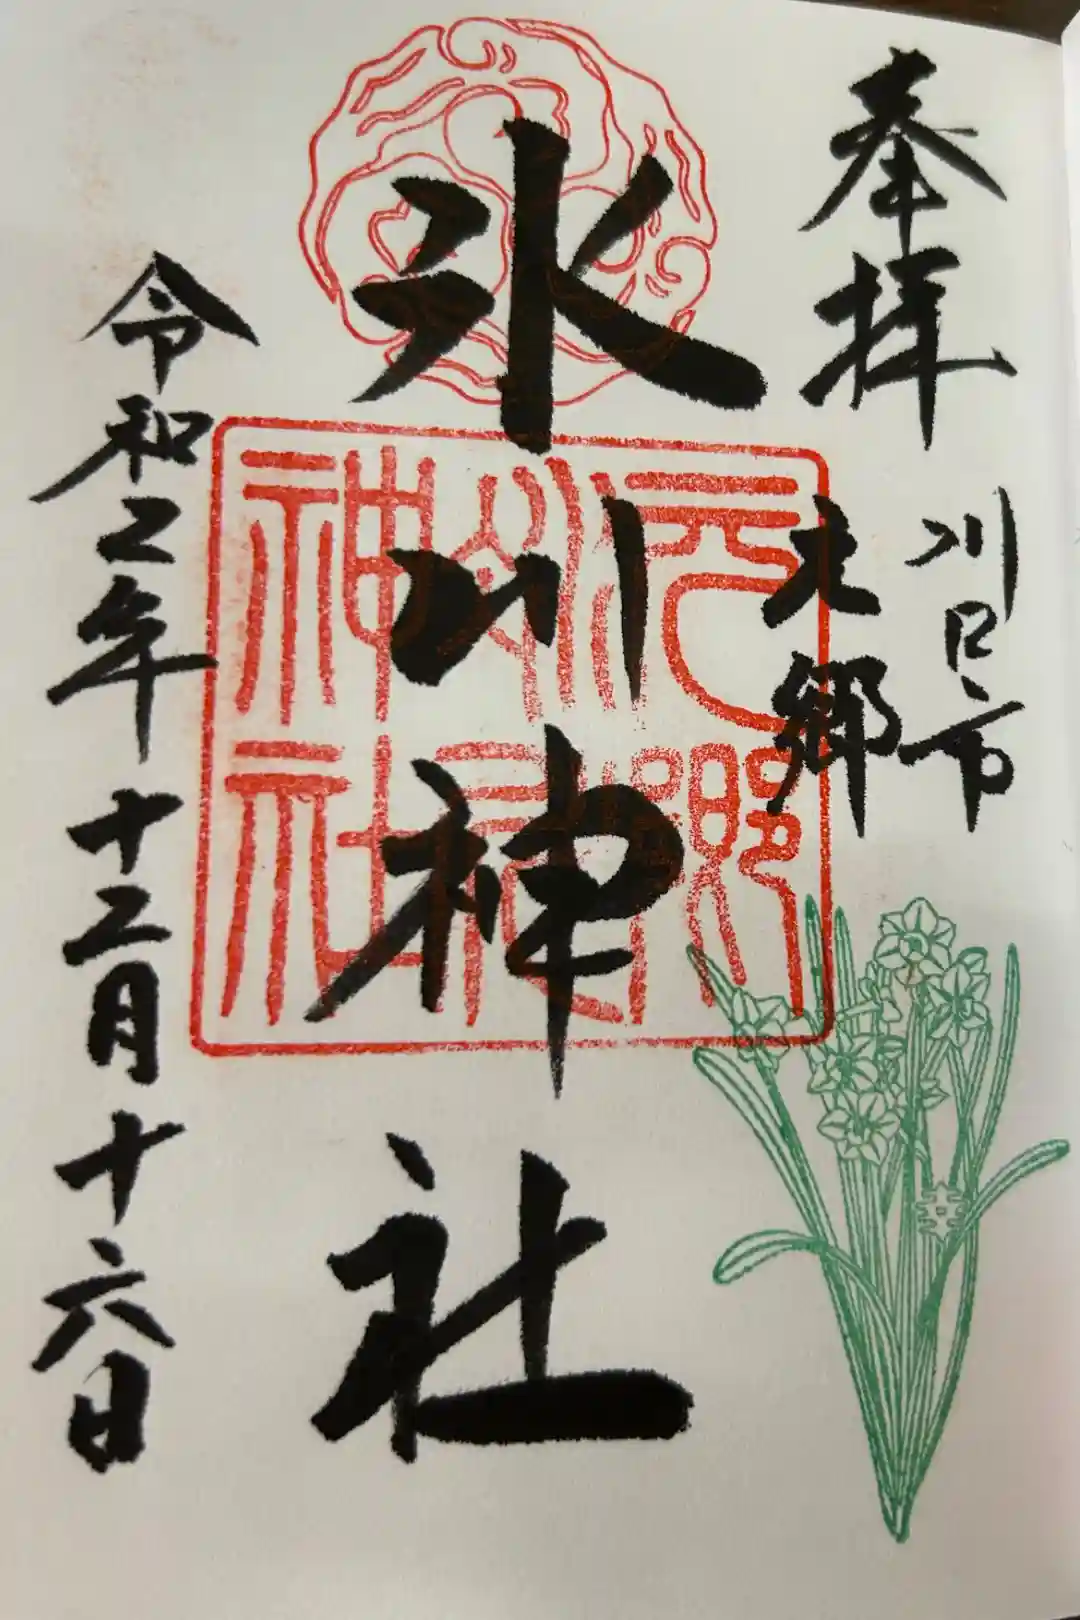 奉拝
川口市
元郷
氷川神社
令和二年十二月十六日
元郷
神社